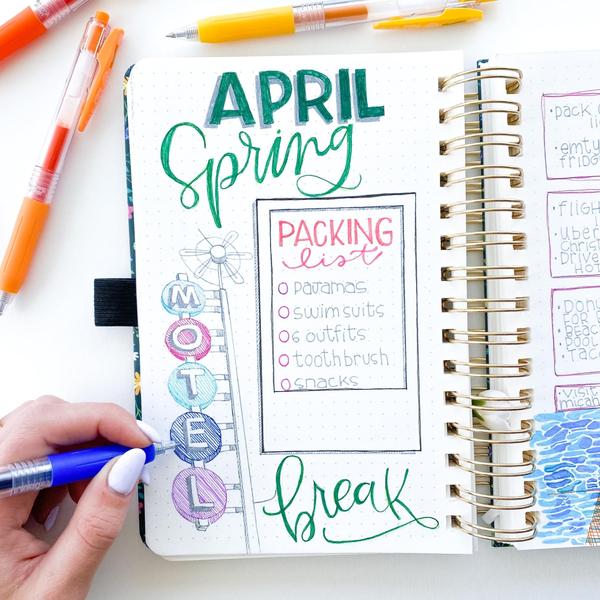 APRIL
Spring
PACKING
list
pajamas
swimsuits
6 outfits
toothbrush
snacks
MOTEL
break
·pack
·emty
fridg
·fligh
·uber
christ
·Drive
HO
·Donu
FOR
beac
POOL
Tac
·visit
micah